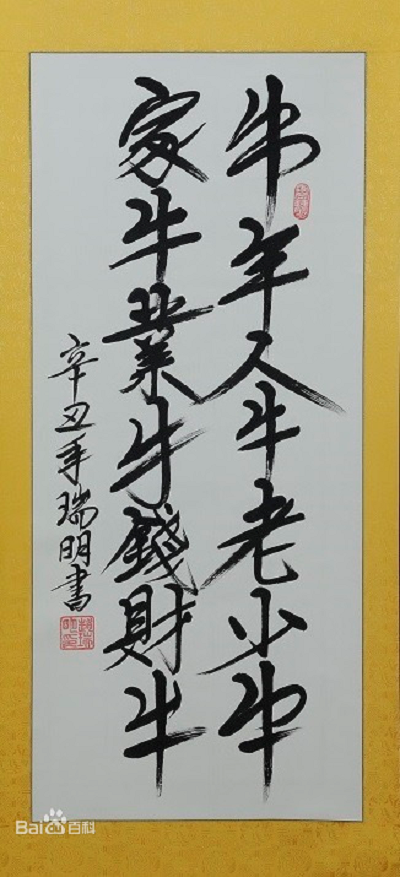 牛年人牛老少牛
家牛業牛錢財牛
辛丑年瑞明書
Bai百科